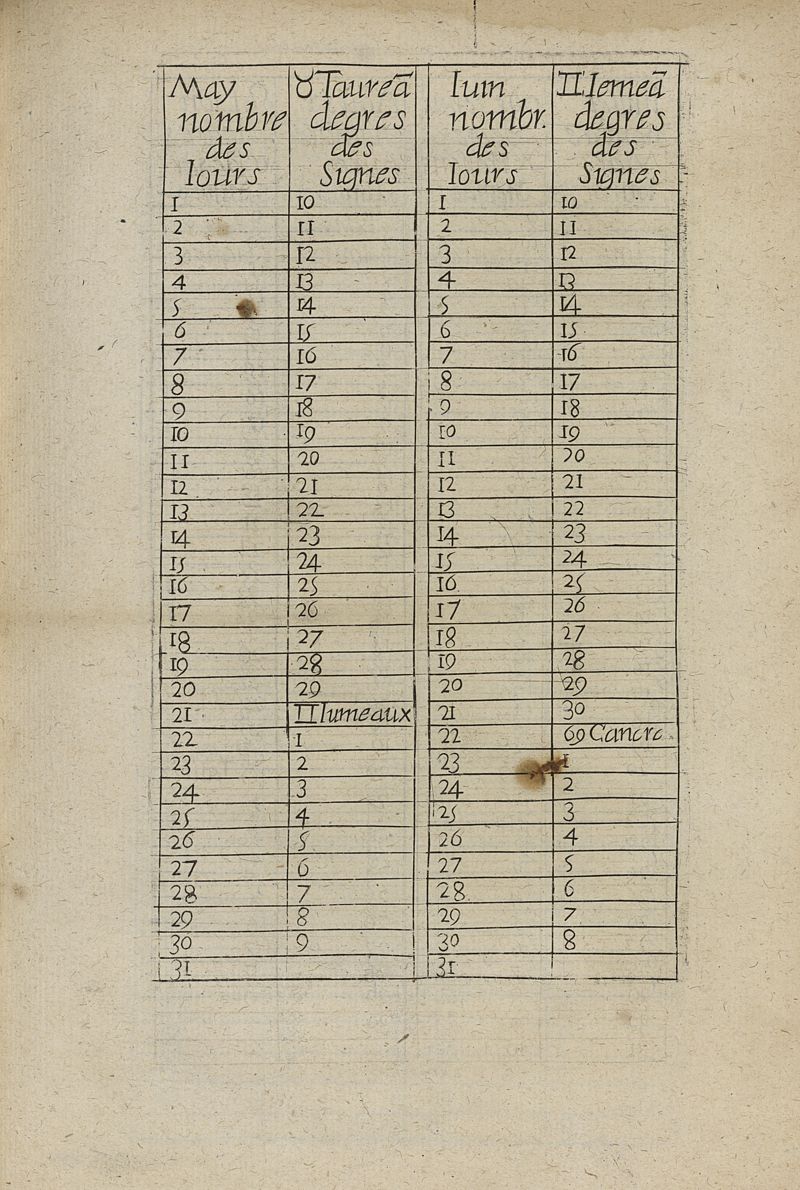 May ♉ Taureā Iuin ♊ Iemeā
nombre degres nombr. degres
des des des des
Iours Signes Iours Signes
1 10 1 10
2 11 2 11
3 12 3 12
4 13 4 13
5 14 5 14
6 15 6 15
7 16 7 16
8 17 8 17
9 18 9 18
10 19 10 19
11 20 11 20
12 21 12 21
13 22 13 22
14 23 14 23
15 24 15 24
16 25 16 25
17 26 17 26
18 27 18 27
19 28 19 28
20 29 20 29
21 ♊ Iumeaux 21 30
22 1 22 ♋ Cancre
23 2 23 1
24 3 24 2
25 4 25 3
26 5 26 4
27 6 27 5
28 7 28 6
29 8 29 7
30 9 30 8
31 31